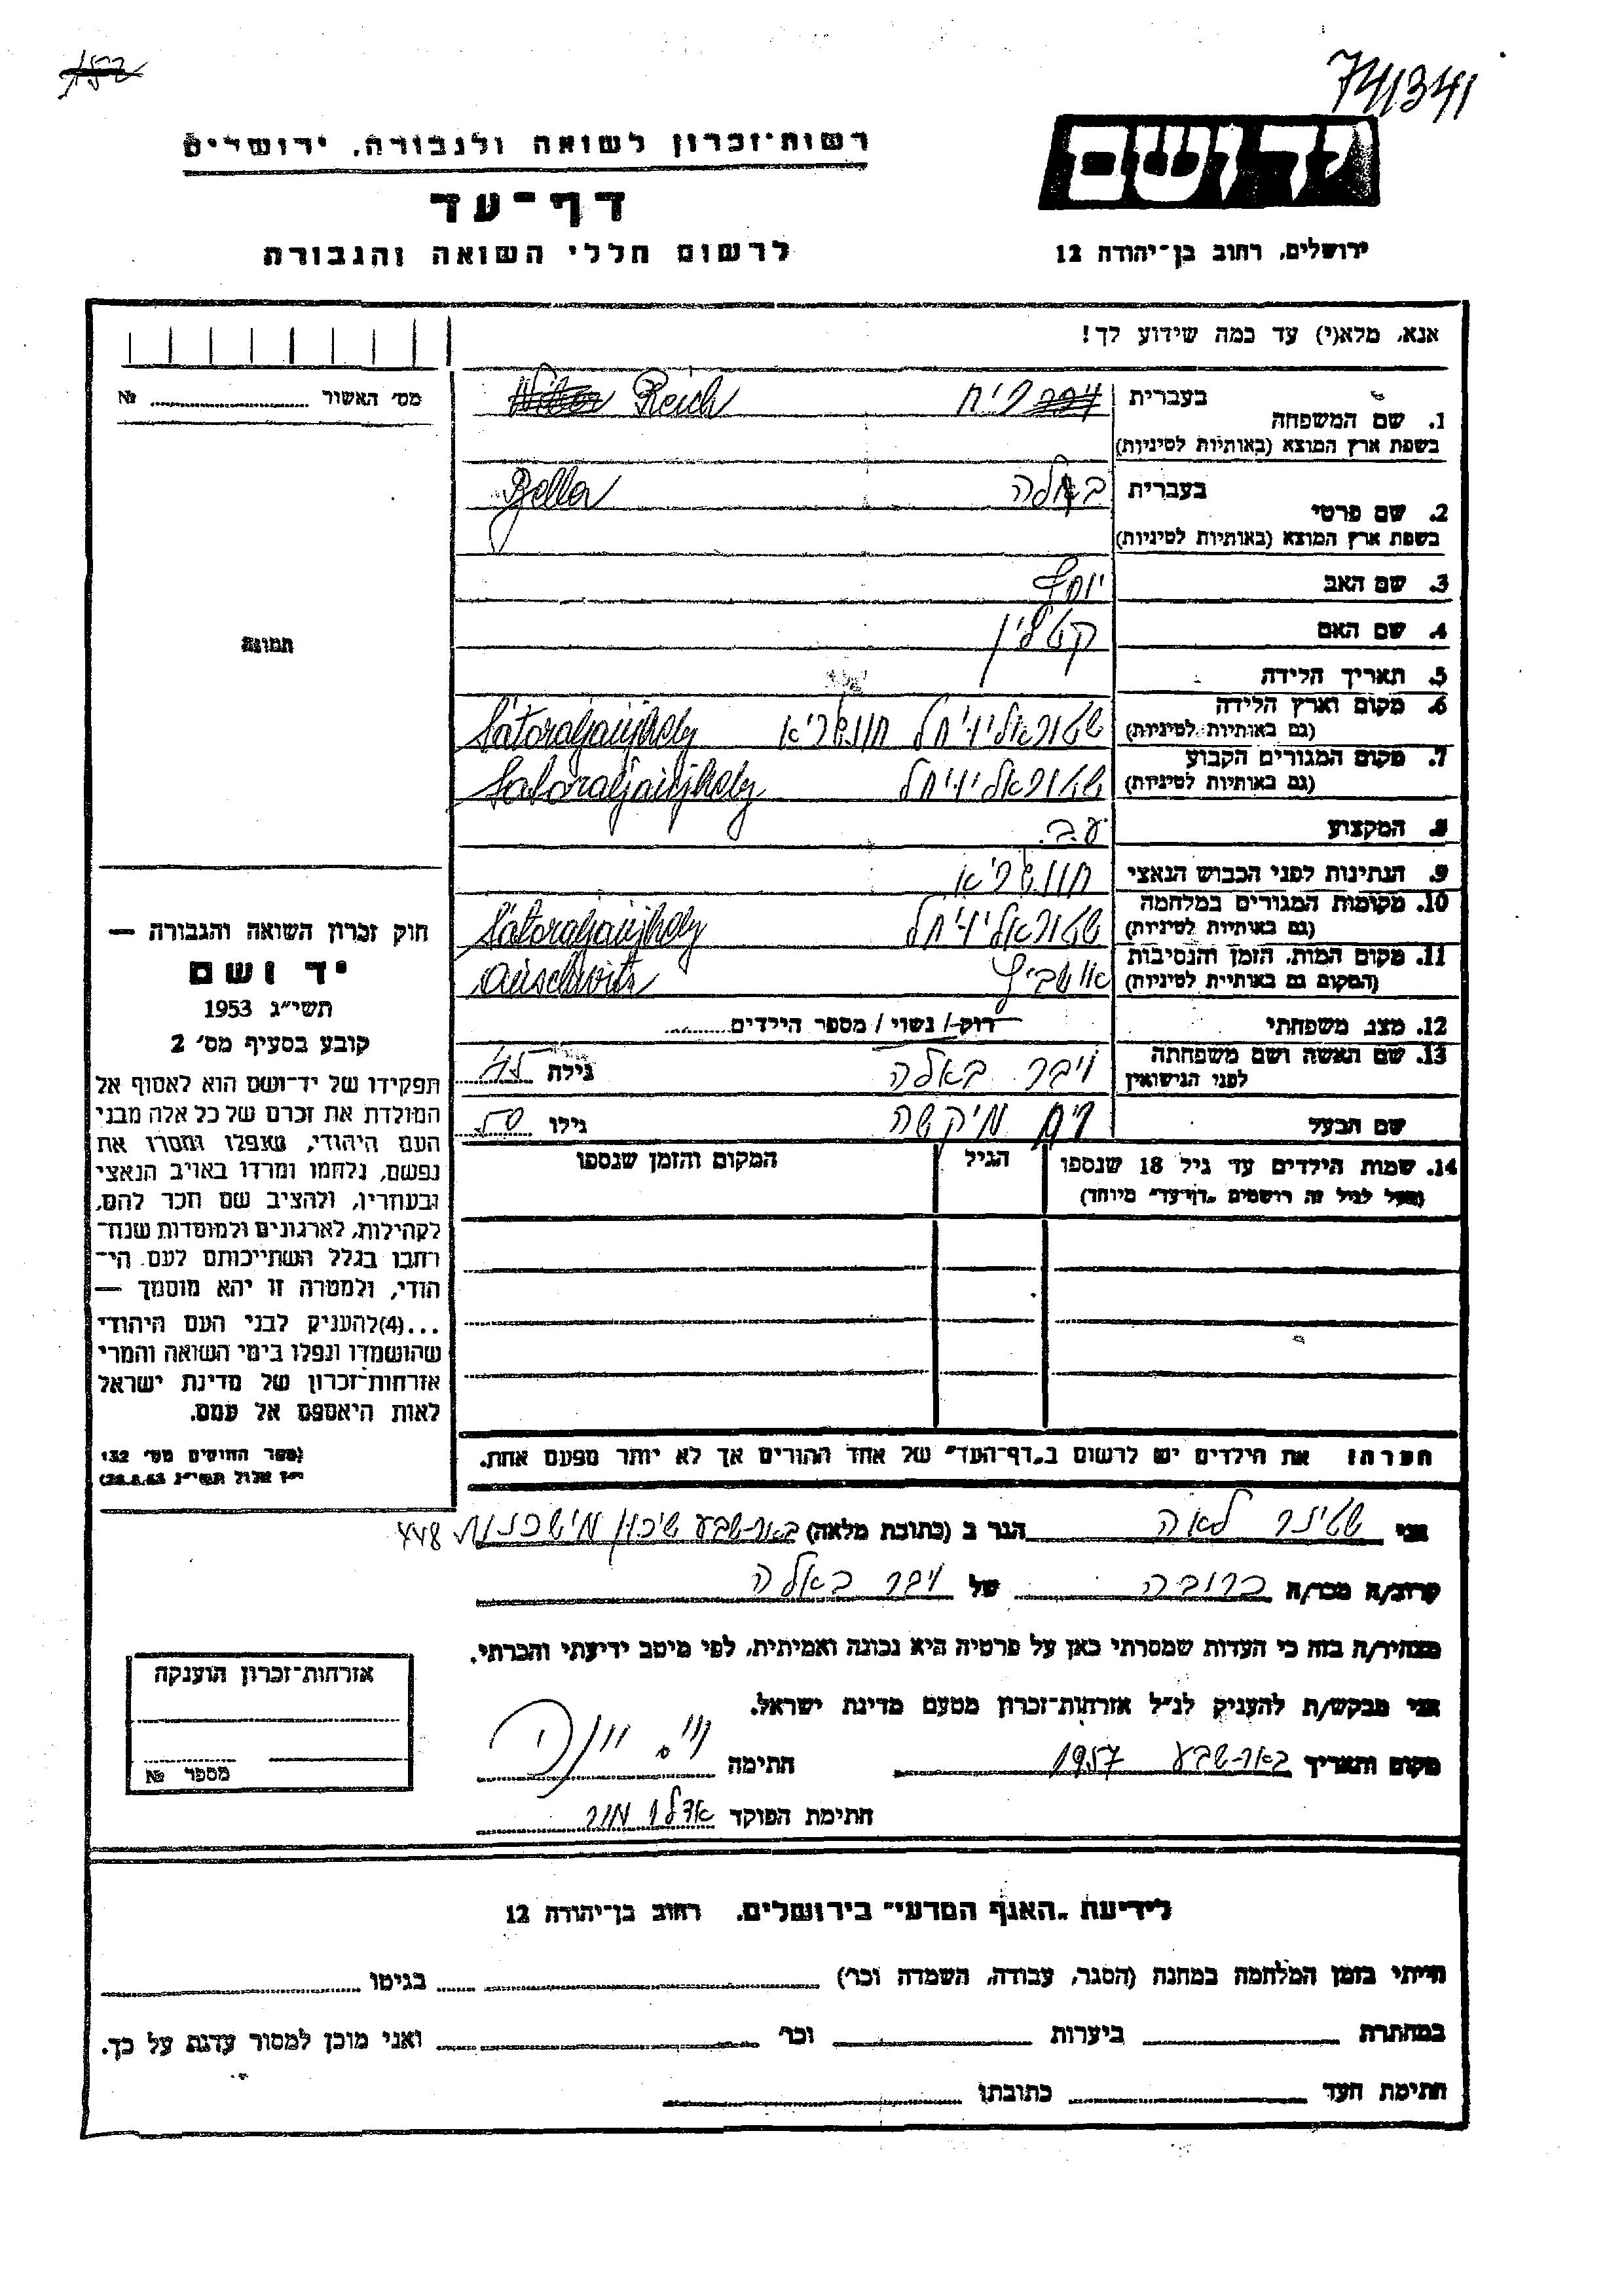 741341
רשות־זכרון לשואה ולגבורה, ירושלים
יד ושם
דף־עד
לרשום חללי השואה והגבורה
ירושלים, רחוב בן־יהודה 12
אנא, מלא(י) עד כמה שידוע לך!
מס׳ האשור № ..........
1. שם המשפחה בעברית רייח Reich
בשפת ארץ המוצא (באותיות לטיניות)
2. שם פרטי בעברית באלה Bella
בשפת ארץ המוצא (באותיות לטיניות)
3. שם האב יוסף
4. שם האם קטלין
תמונה
5. תאריך הלידה
6. מקום וארץ הלידה שטוראליויחל הונגריא Sátoraljaújhely
(גם באותיות לטיניות)
7. מקום המגורים הקבוע שטוראליויחל Sátoraljaújhely
(גם באותיות לטיניות)
8. המקצוע ע.ב.
9. הנתינות לפני הכבוש הנאצי הונגריא
10. מקומות המגורים במלחמה שטוראליויחל Sátoraljaújhely
(גם באותיות לטיניות)
11. מקום המות, הזמן והנסיבות אושביץ Auschwitz
(המקום גם באותיות לטיניות)
12. מצב משפחתי רוק / נשוי / מספר הילדים ..........
13. שם האשה ושם משפחתה ויבר באלה גילה 45
לפני הנישואין
שם הבעל גילו 50
14. שמות הילדים עד גיל 18 שנספו הגיל המקום והזמן שנספו
(מעל לגיל זה רושמים „דף־עד״ מיוחד)
חוק זכרון השואה והגבורה —
יד ושם
תשי״ג 1953
קובע בסעיף מס׳ 2
תפקידו של יד־ושם הוא לאסוף אל
המולדת את זכרם של כל אלה מבני
העם היהודי, שנפלו ומסרו את
נפשם, נלחמו ומרדו באויב הנאצי
ובעוזריו, ולהציב שם וזכר להם,
לקהילות, לארגונים ולמוסדות שנח־
רבו בגלל השתייכותם לעם הי־
הודי, ולמטרה זו יהא מוסמך —
...(4)להעניק לבני העם היהודי
שהושמדו ונפלו בימי השואה והמרי
אזרחות־זכרון של מדינת ישראל
לאות היאספם אל עמם.
(ספר החוקים מס׳ 132
י״ז אלול תשי״ג 28.8.53)
הערה: את הילדים יש לרשום ב„דף־העד״ של אחד ההורים אך לא יותר מפעם אחת.
אני שטינר לאה הגר ב (כתובת מלאה) באר-שבע שיכון 448
קרוב/ה מכר/ה קרובה של ויבר באלה
מצהיר/ה בזה כי העדות שמסרתי כאן על פרטיה היא נכונה ואמיתית, לפי מיטב ידיעתי והכרתי.
אני מבקש/ת להעניק לנ״ל אזרחות־זכרון מטעם מדינת ישראל.
מקום ותאריך באר-שבע 1957 חתימה
חתימת הפוקד
אזרחות־זכרון הוענקה
מספר №
לידיעת „האגף המדעי״ בירושלים, רחוב בן־יהודה 12
הייתי בזמן המלחמה במחנה (הסגר, עבודה, השמדה וכר׳) .......... בגיטו ..........
במחתרת .......... ביערות .......... וכר׳ .......... ואני מוכן למסור עדות על כך.
חתימת העד .......... כתובתו ..........